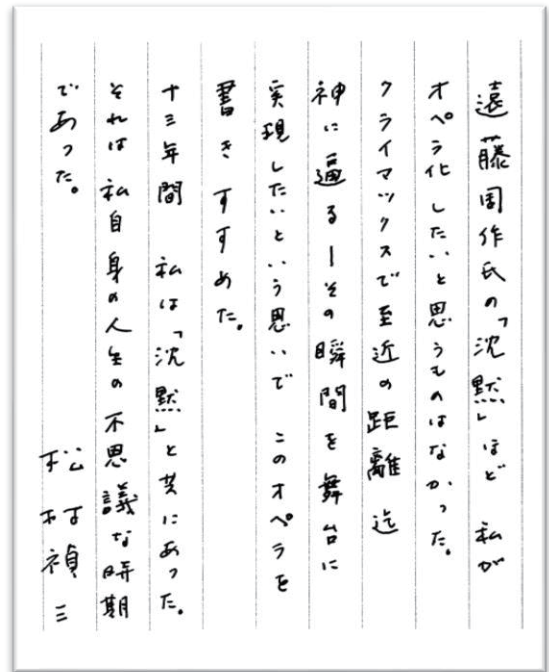 遠藤周作氏の「沈黙」ほど 私が
オペラ化したいと思うものはなかった。
クライマックスで至近の距離迄
神に逼る―その瞬間を舞台に
実現したいという思いで このオペラを
書きすすめた。
十三年間 私は「沈黙」と共にあった。
それは 私自身の人生の不思議な時期
であった。
松村禎三